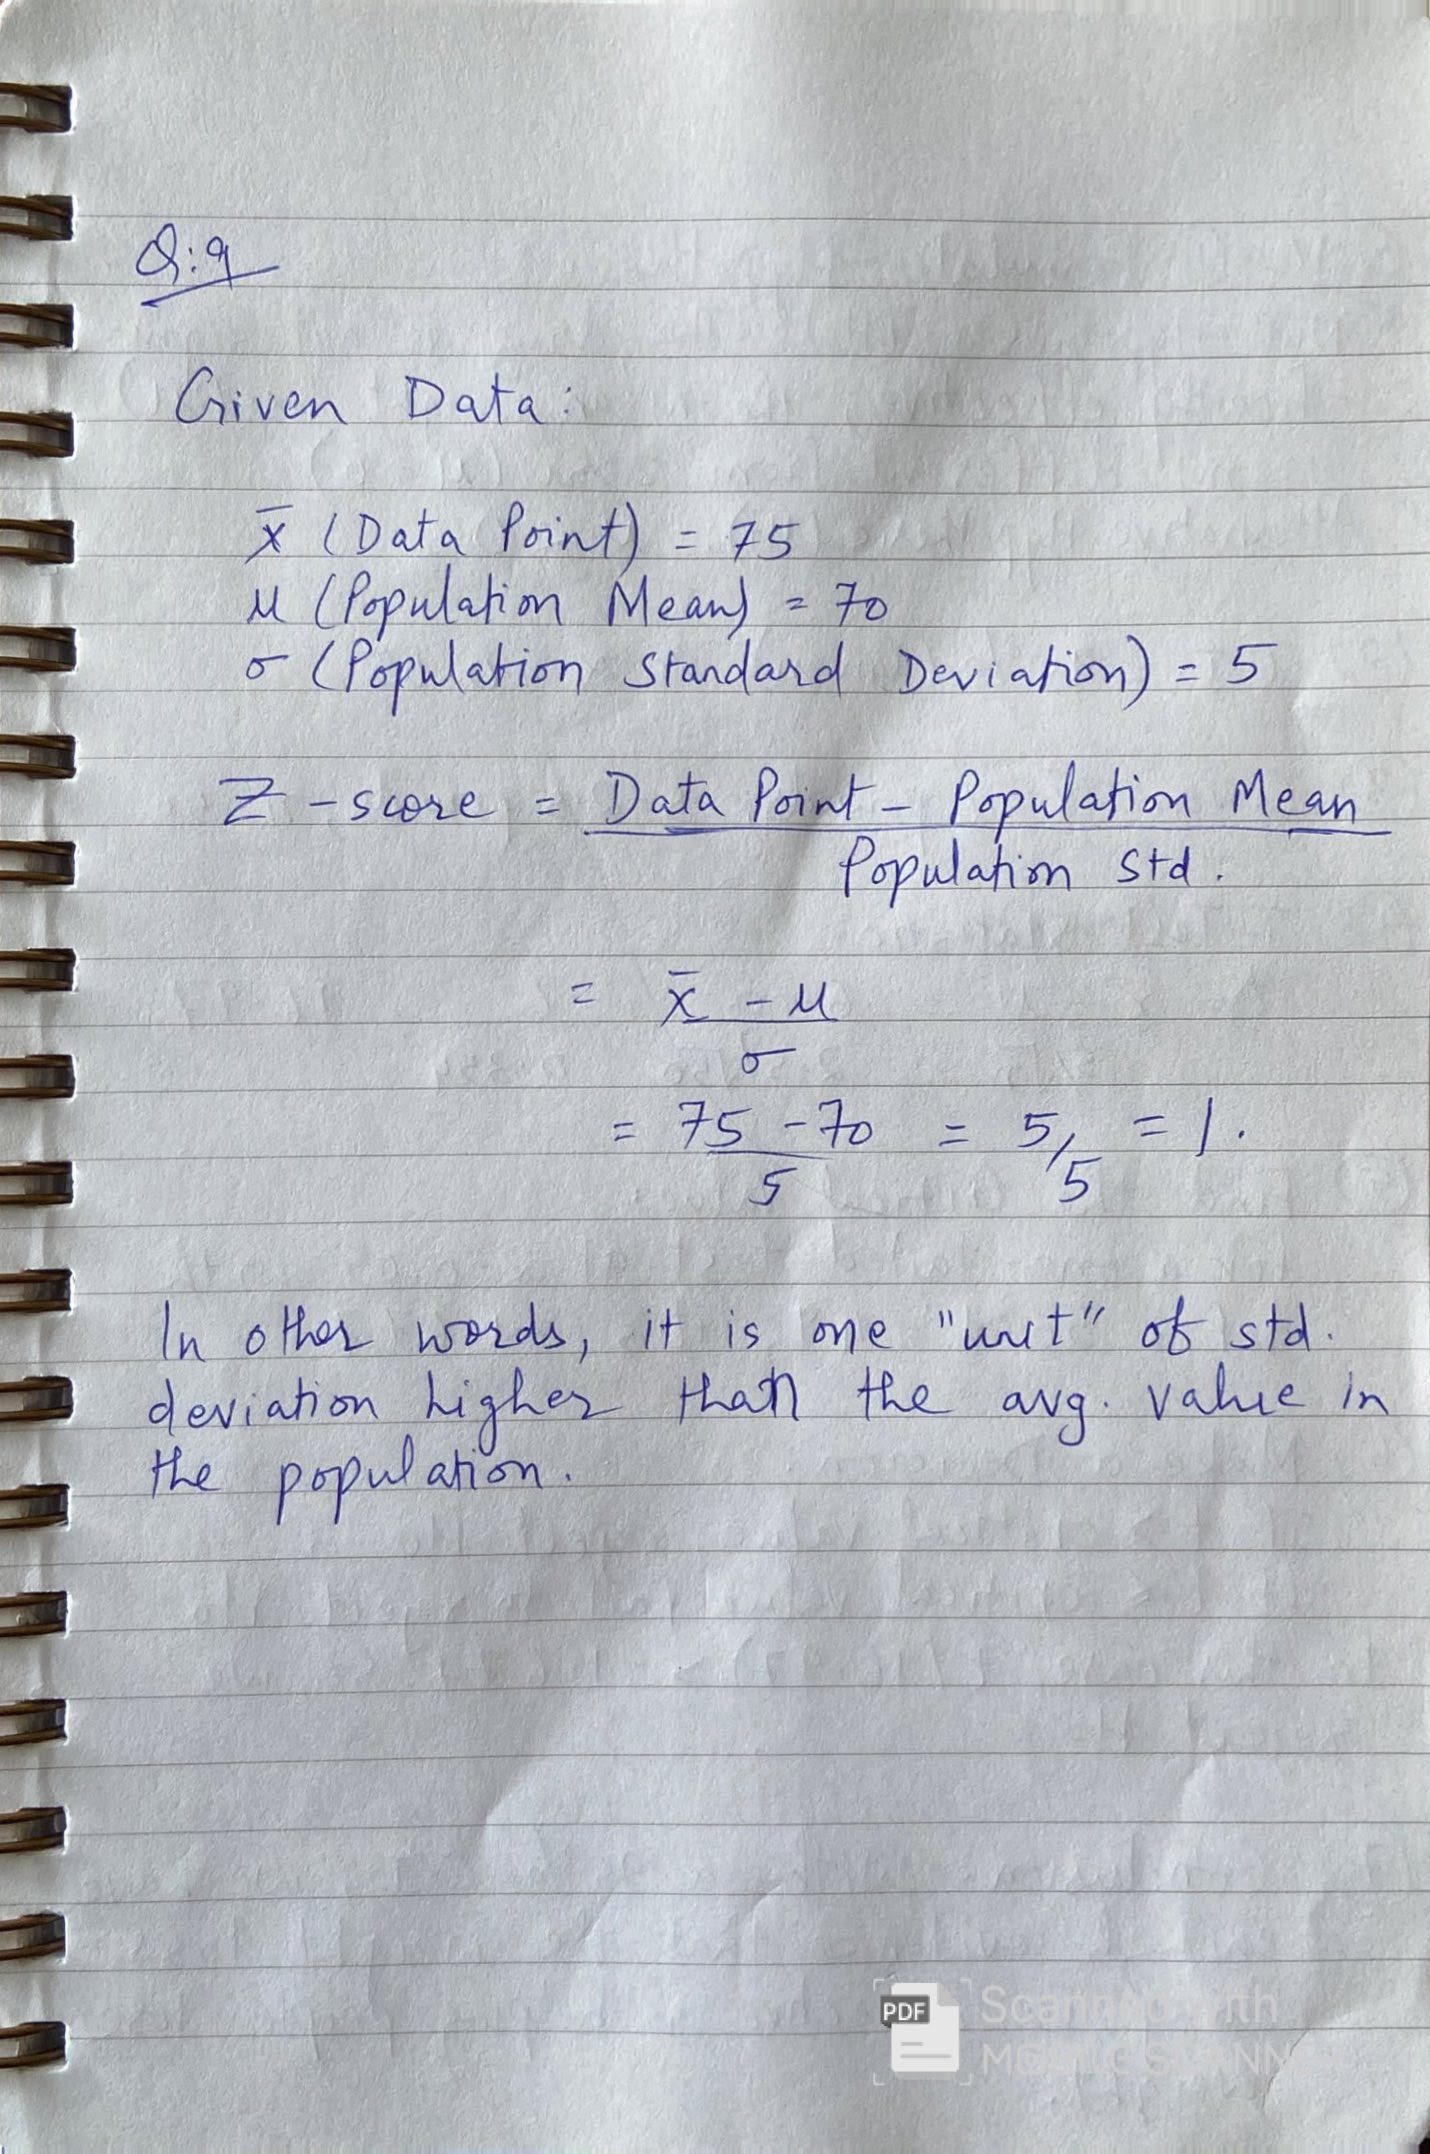 Q:9
Given Data:
x̄ (Data Point) = 75
μ (Population Mean) = 70
σ (Population Standard Deviation) = 5
Z-score = Data Point - Population Mean
Population Std.
= x̄ - μ
σ
= 75 - 70 = 5/5 = 1.
5
In other words, it is one "unit" of std.
deviation higher than the avg. value in
the population.
PDF
Scanned with
MOBILE SCANNER